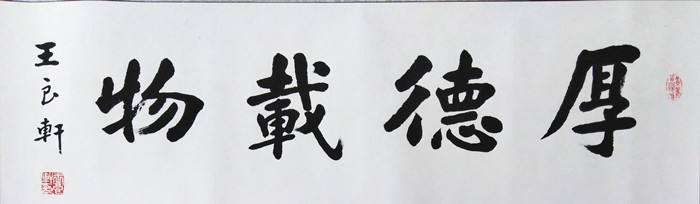 厚德載物
王良軒